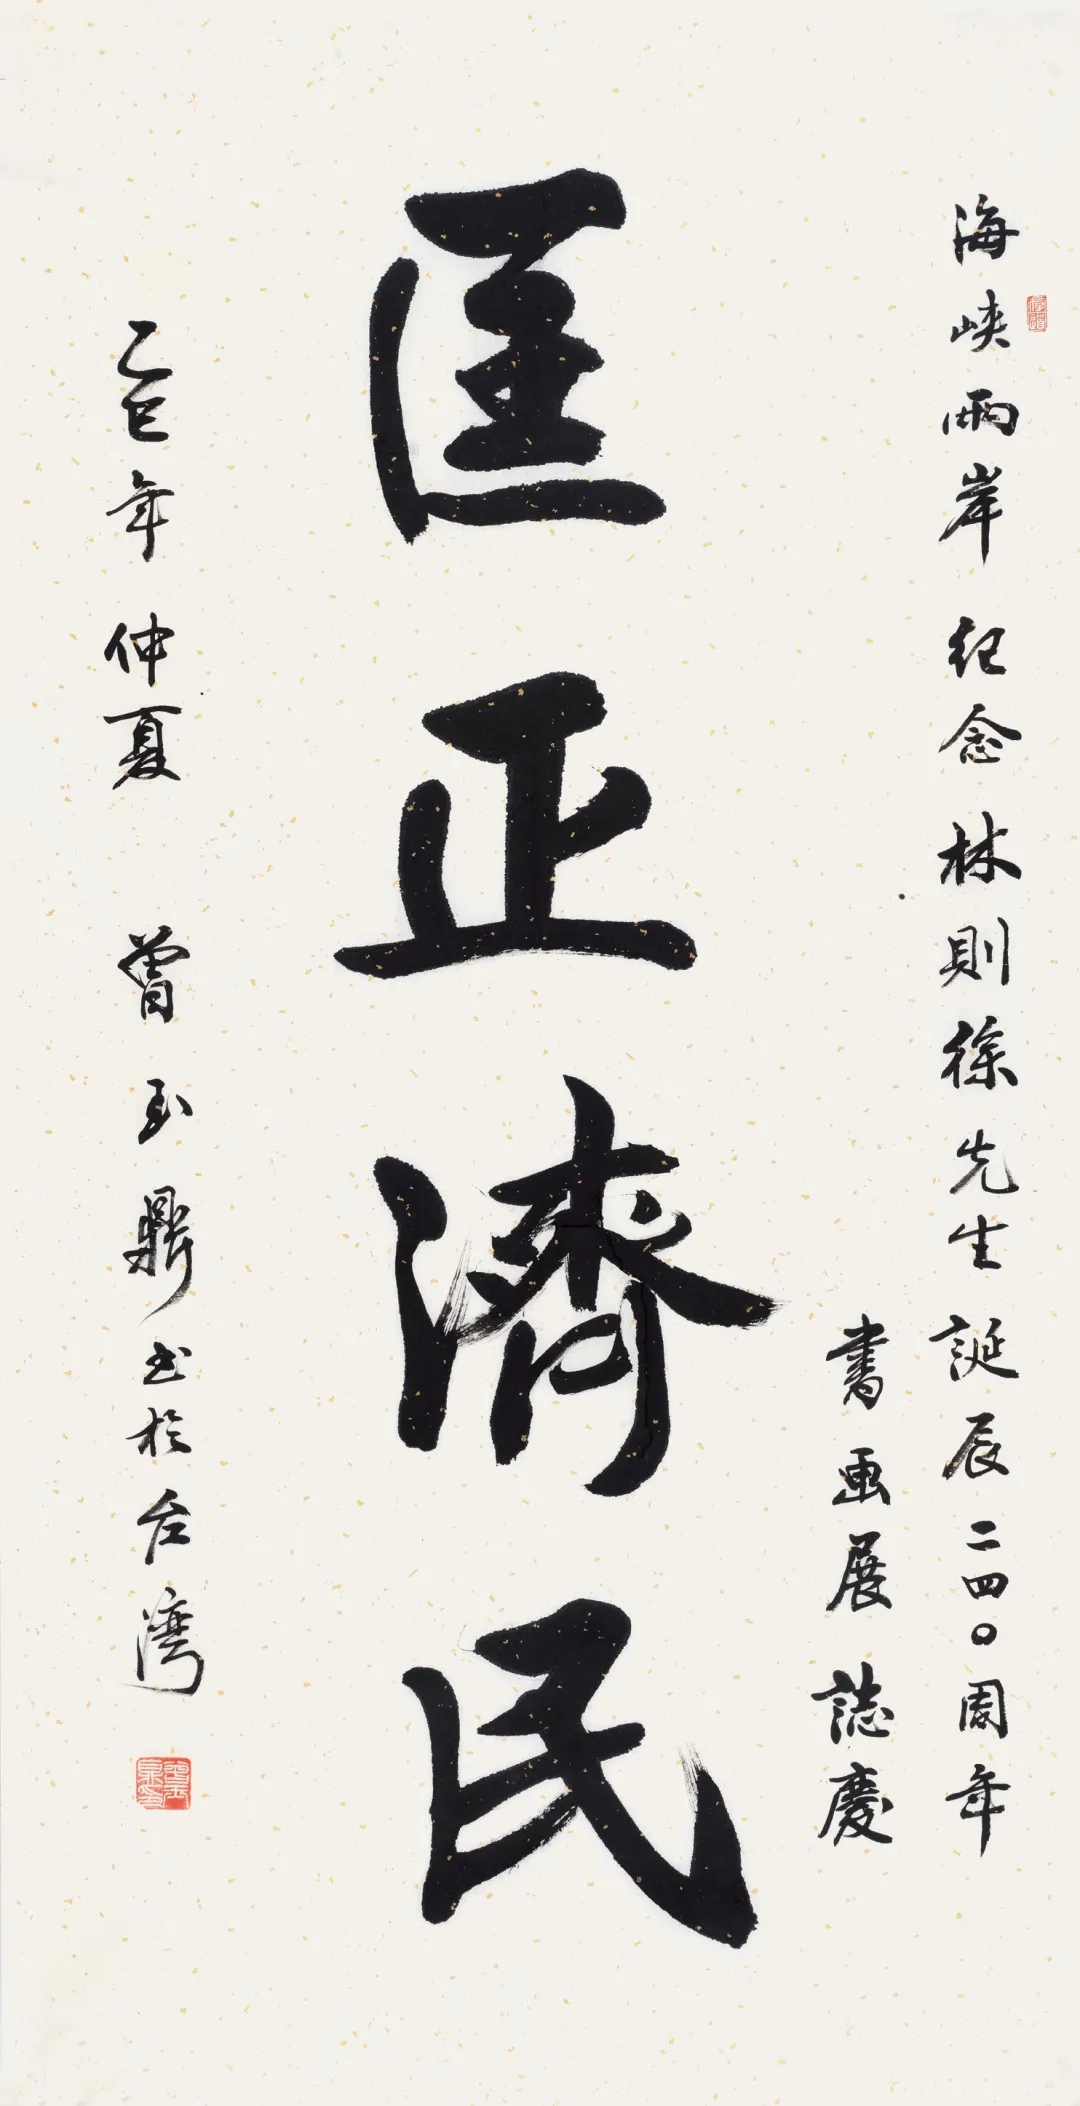 海峽兩岸紀念林則徐先生誕辰二四〇周年
書画展誌慶
匡正濟民
乙巳年仲夏 曾玉鼎书於台灣